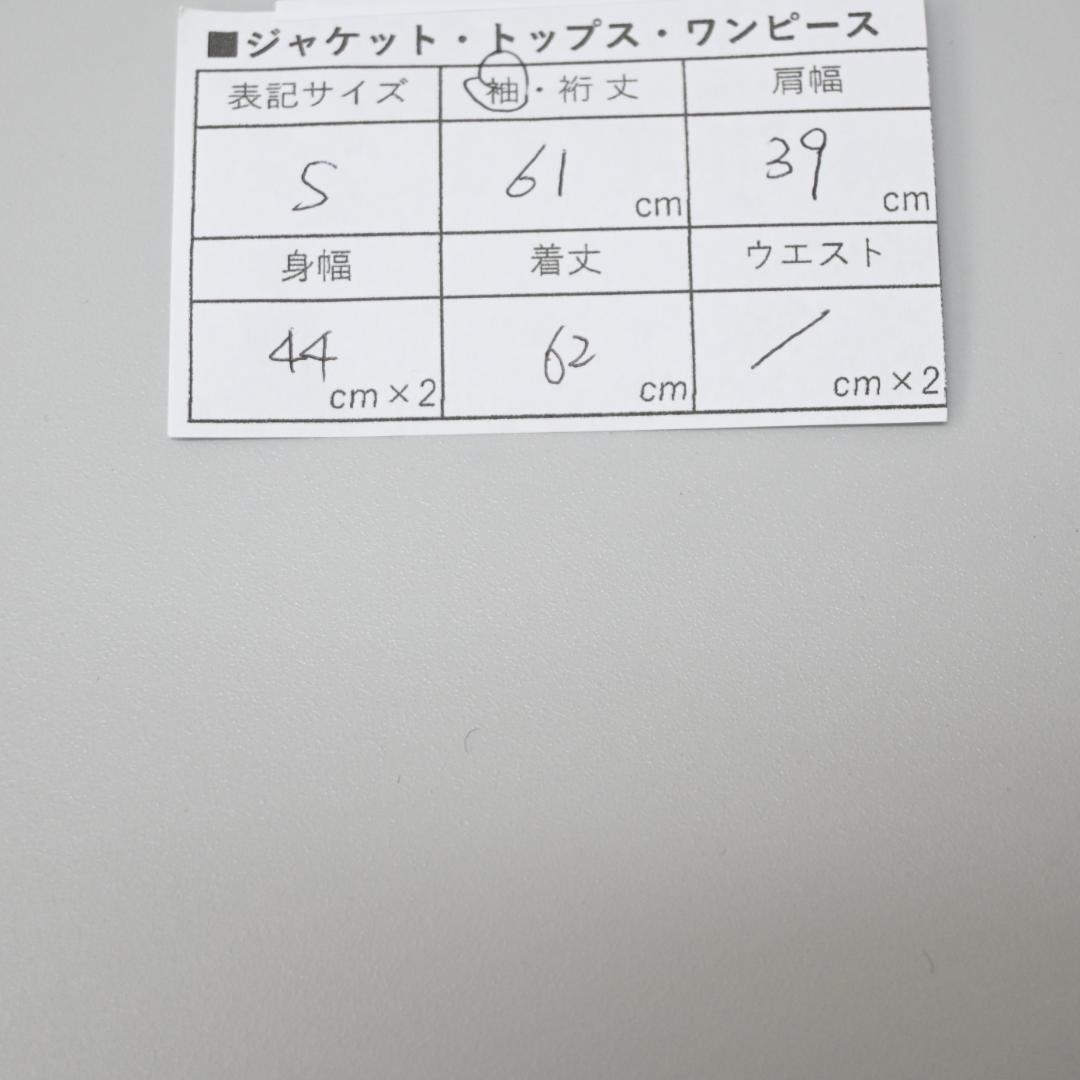 ■ジャケット・トップス・ワンピース
表記サイズ 袖・裄丈 肩幅
S 61 cm 39 cm
身幅 着丈 ウエスト
44 cm×2 62 cm / cm×2